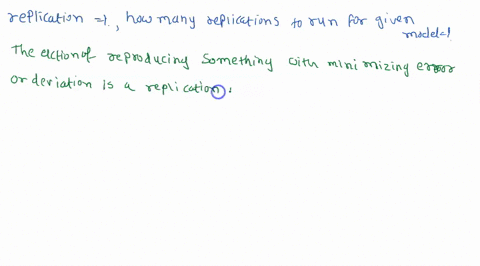 replication =?, how many replications to run for given model=?
The action of reproducing something with minimizing error
or deviation is a replication.